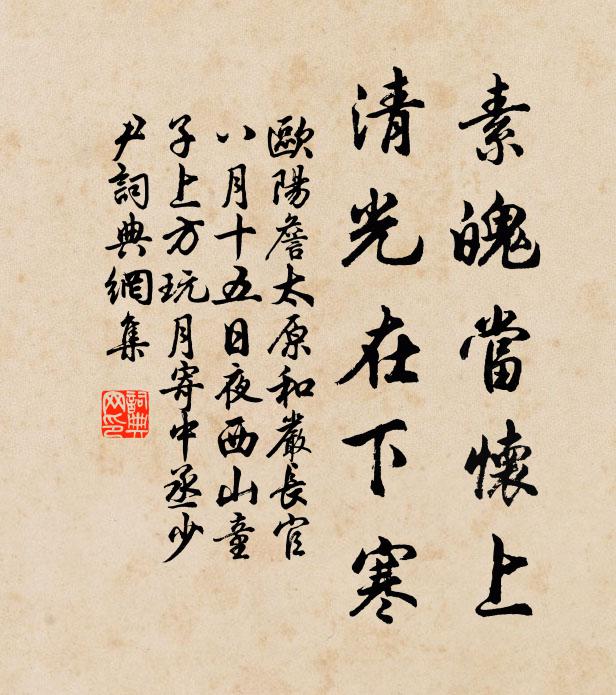 素魄當懷上
清光在下寒
歐陽詹太原和嚴長官
八月十五日夜西山童
子上方玩月寄中丞少
尹詞典網集
詞典
网印